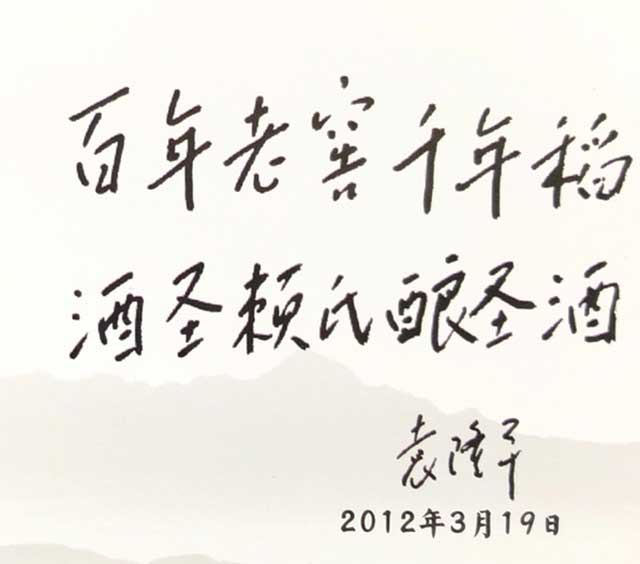 百年老窖千年稻
酒圣赖氏酿圣酒
袁隆平
2012年3月19日